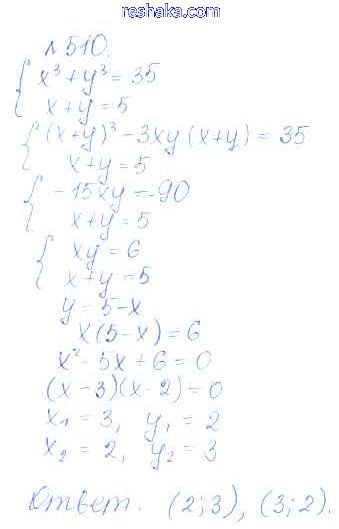 reshaka.com
№510.
x³ + y³ = 35
x + y = 5
(x+y)³ - 3xy (x+y) = 35
x + y = 5
-15xy = -90
x + y = 5
xy = 6
x + y = 5
y = 5 - x
x(5 - x) = 6
x² - 5x + 6 = 0
(x - 3)(x - 2) = 0
x₁ = 3, y₁ = 2
x₂ = 2, y₂ = 3
Ответ. (2; 3), (3; 2).